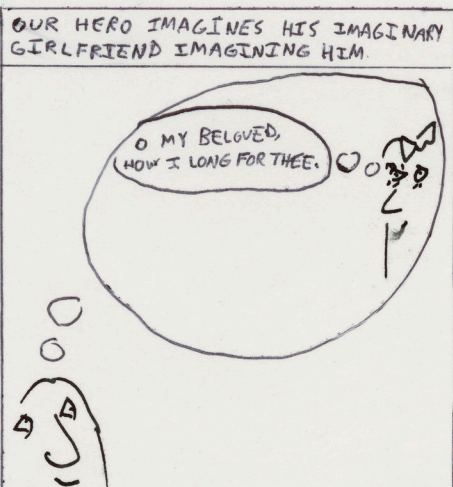 OUR HERO IMAGINES HIS IMAGINARY
GIRLFRIEND IMAGINING HIM.
O MY BELOVED,
HOW I LONG FOR THEE.